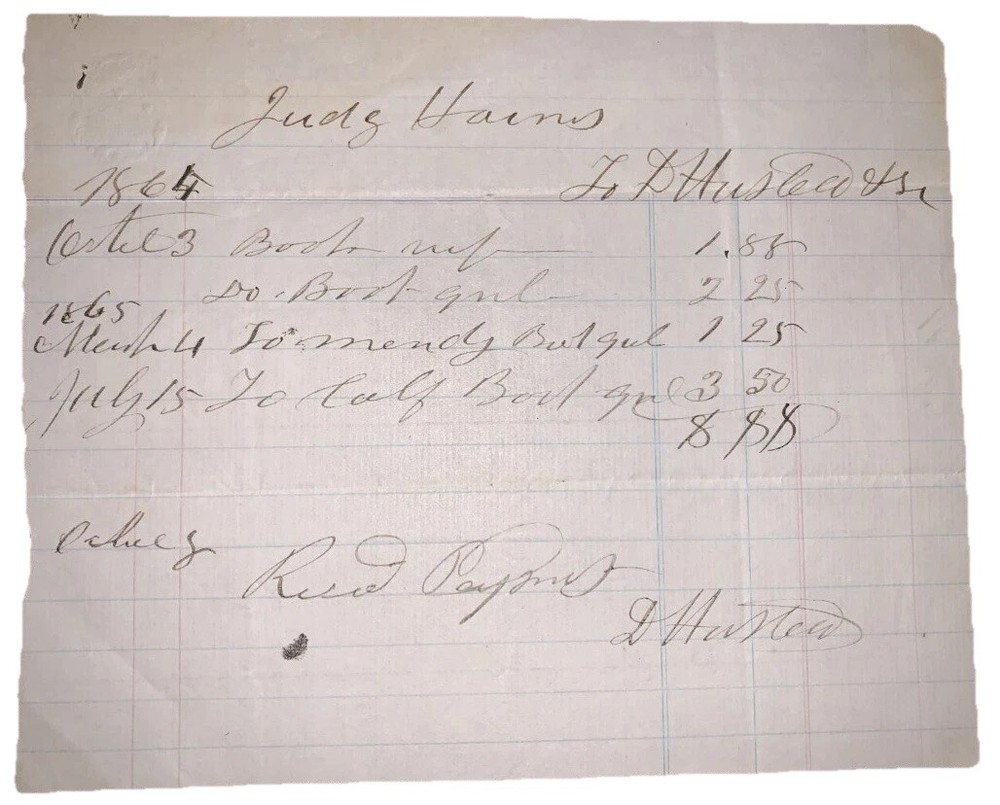 Judg Hains
1864 To D Husted & Sn
3 Boots 1.88
Do. Boot gul 2 25
1865
March 4 To mendg Bot gul 1 25
July 15 To Calf Boot gul 3 50
8 88
Recd Paymt
D Husted